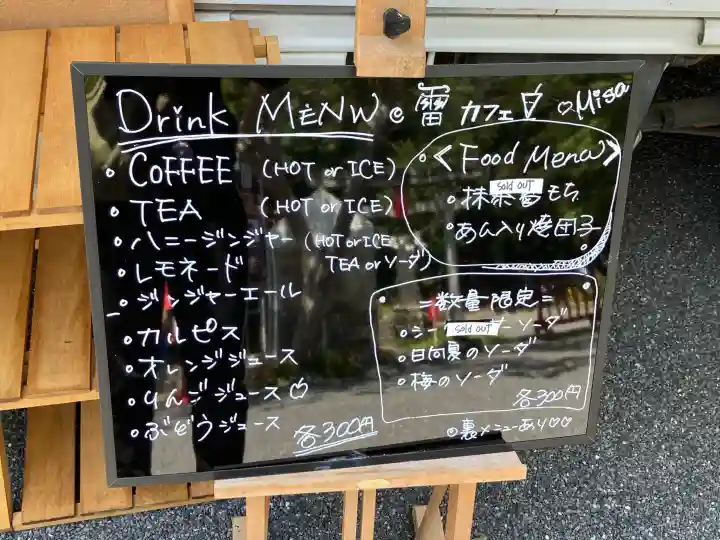 Drink MENU @ 雷カフェ ♡Misa
• COFFEE (HOT or ICE)
• TEA (HOT or ICE)
• ハニージンジャー (HOT or ICE
TEA or ソーダ)
• レモネード
• ジンジャーエール
• カルピス
• オレンジジュース
• りんごジュース
• ぶどうジュース
各300円
• <Food Menu>
• 抹茶 もち
sold out
• あん入り焼団子
=数量限定=
• シー ソーダ
sold out
• 日向夏のソーダ
• 梅のソーダ
各300円
◎裏メニューあり♡♡